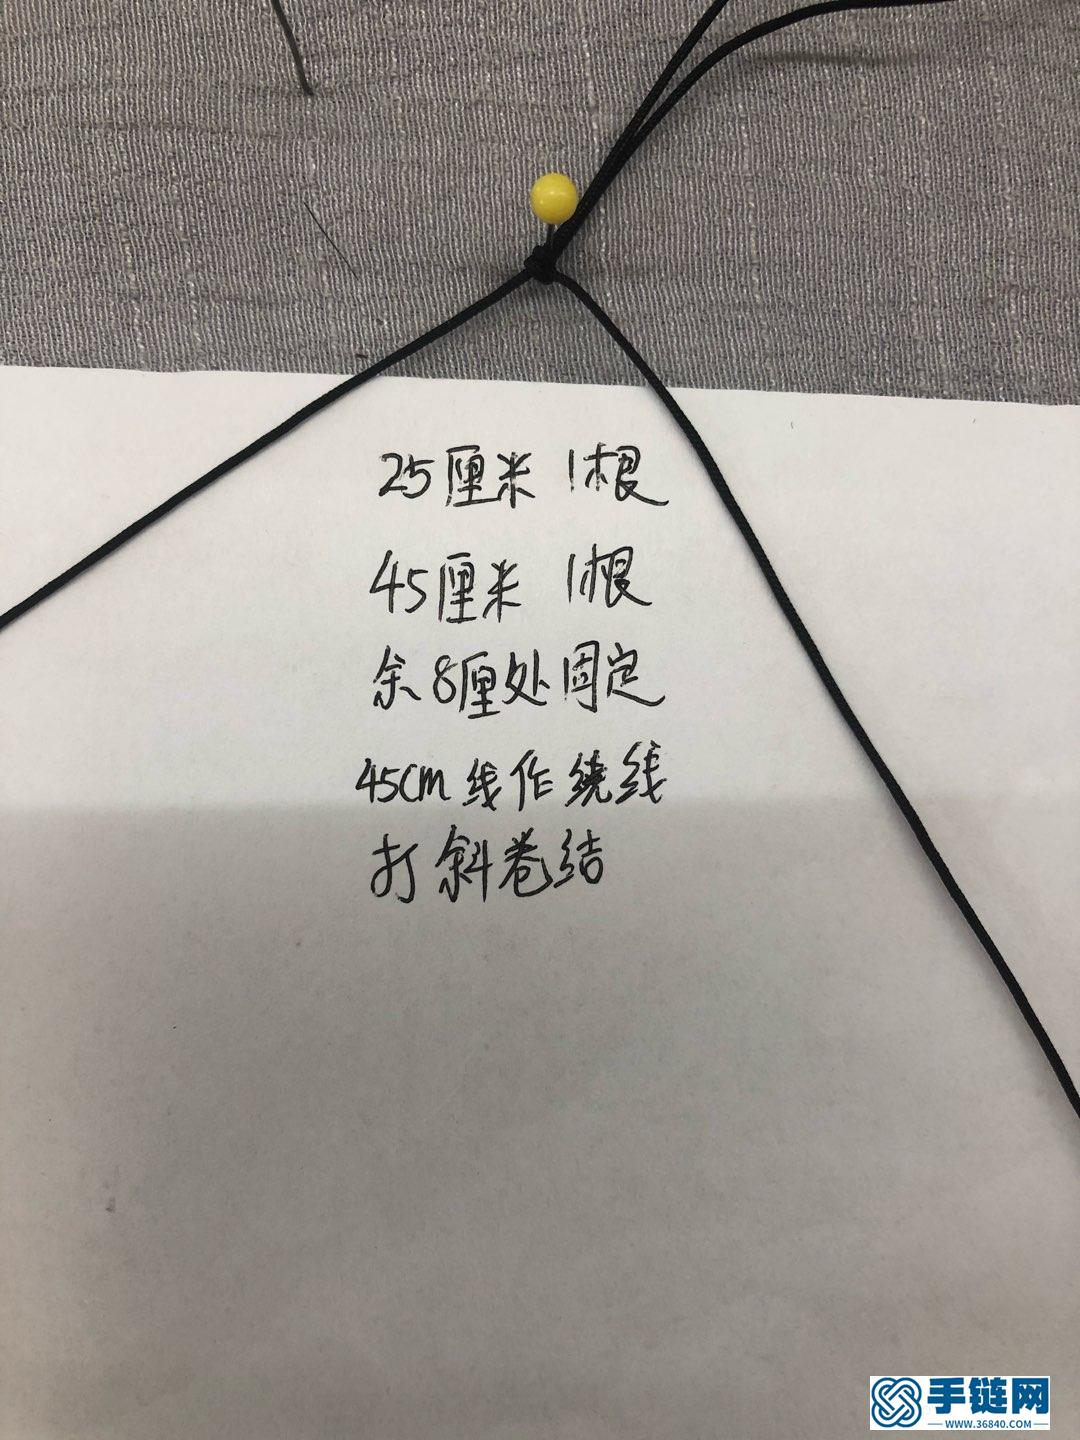 25厘米 1根
45厘米 1根
余8厘处固定
45cm线作绕线
打斜卷结
手链网
WWW.36840.COM